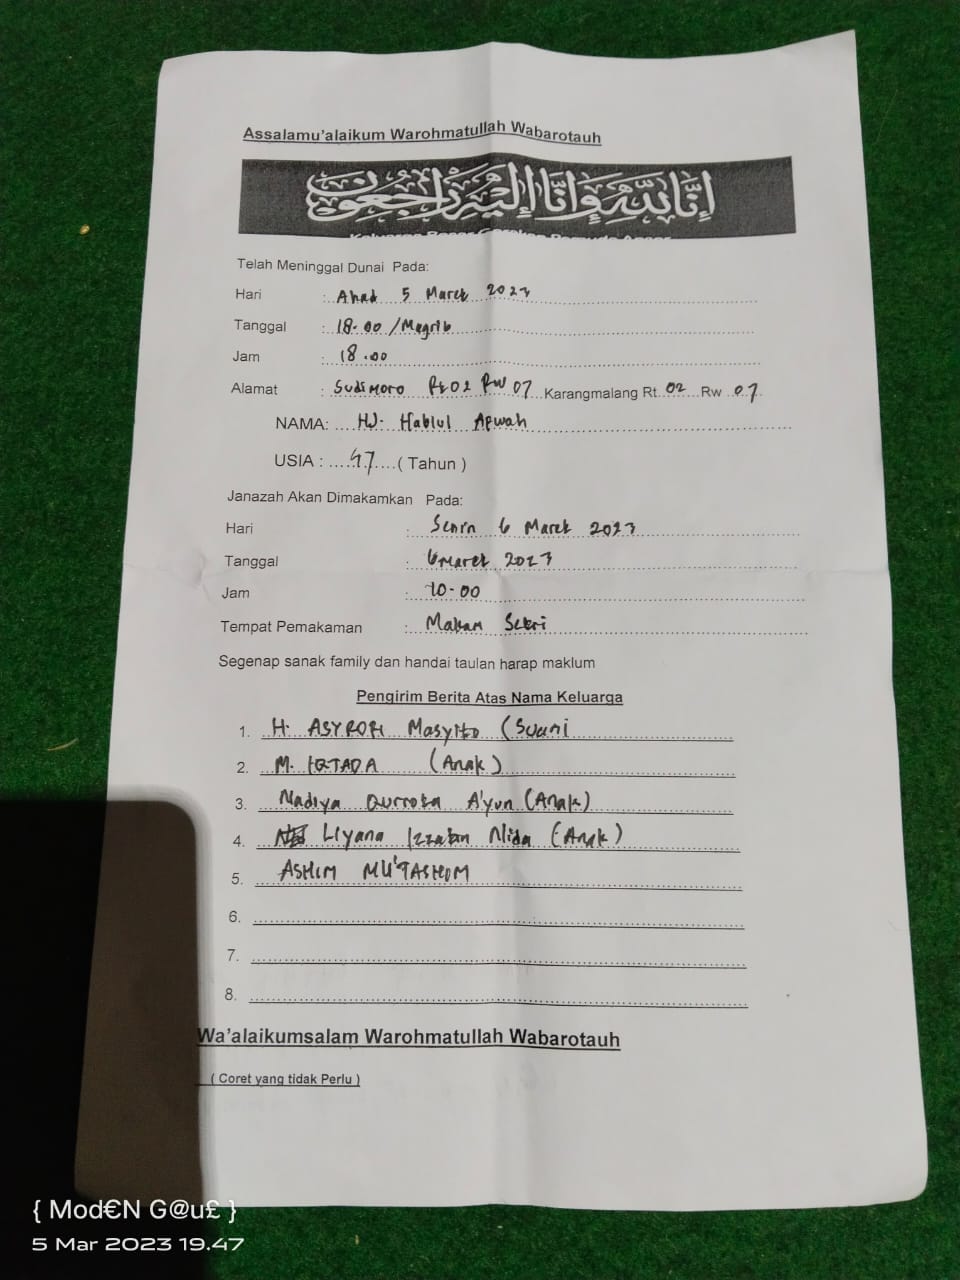 Assalamu'alaikum Warohmatullah Wabarotauh
إنا لله وإنا إليه راجعون
Telah Meninggal Dunai Pada:
Hari : Ahad 5 Maret 2023
Tanggal : 18.00 /Magrib
Jam : 18.00
Alamat : Sudimoro Rt 02 RW 07 Karangmalang Rt 02 Rw 07
NAMA: HJ. Hablul
USIA : 47 ( Tahun )
Janazah Akan Dimakamkan Pada:
Hari : Senin 6 Maret 2023
Tanggal : 6 Maret 2023
Jam : 10.00
Tempat Pemakaman : Makam
Segenap sanak family dan handai taulan harap maklum
Pengirim Berita Atas Nama Keluarga
1. H. ASYROFI Masyito (Suami
2. M. IQTADA (Anak)
3. Nadiya Qurrota A'yun (Anak)
4. Liyana Izzatun Nida (Anak)
5. ASHIM MU'TASHIM
6.
7.
8.
Wa'alaikumsalam Warohmatullah Wabarotauh
( Coret yang tidak Perlu )
{ Mod€N G@u£ }
5 Mar 2023 19.47